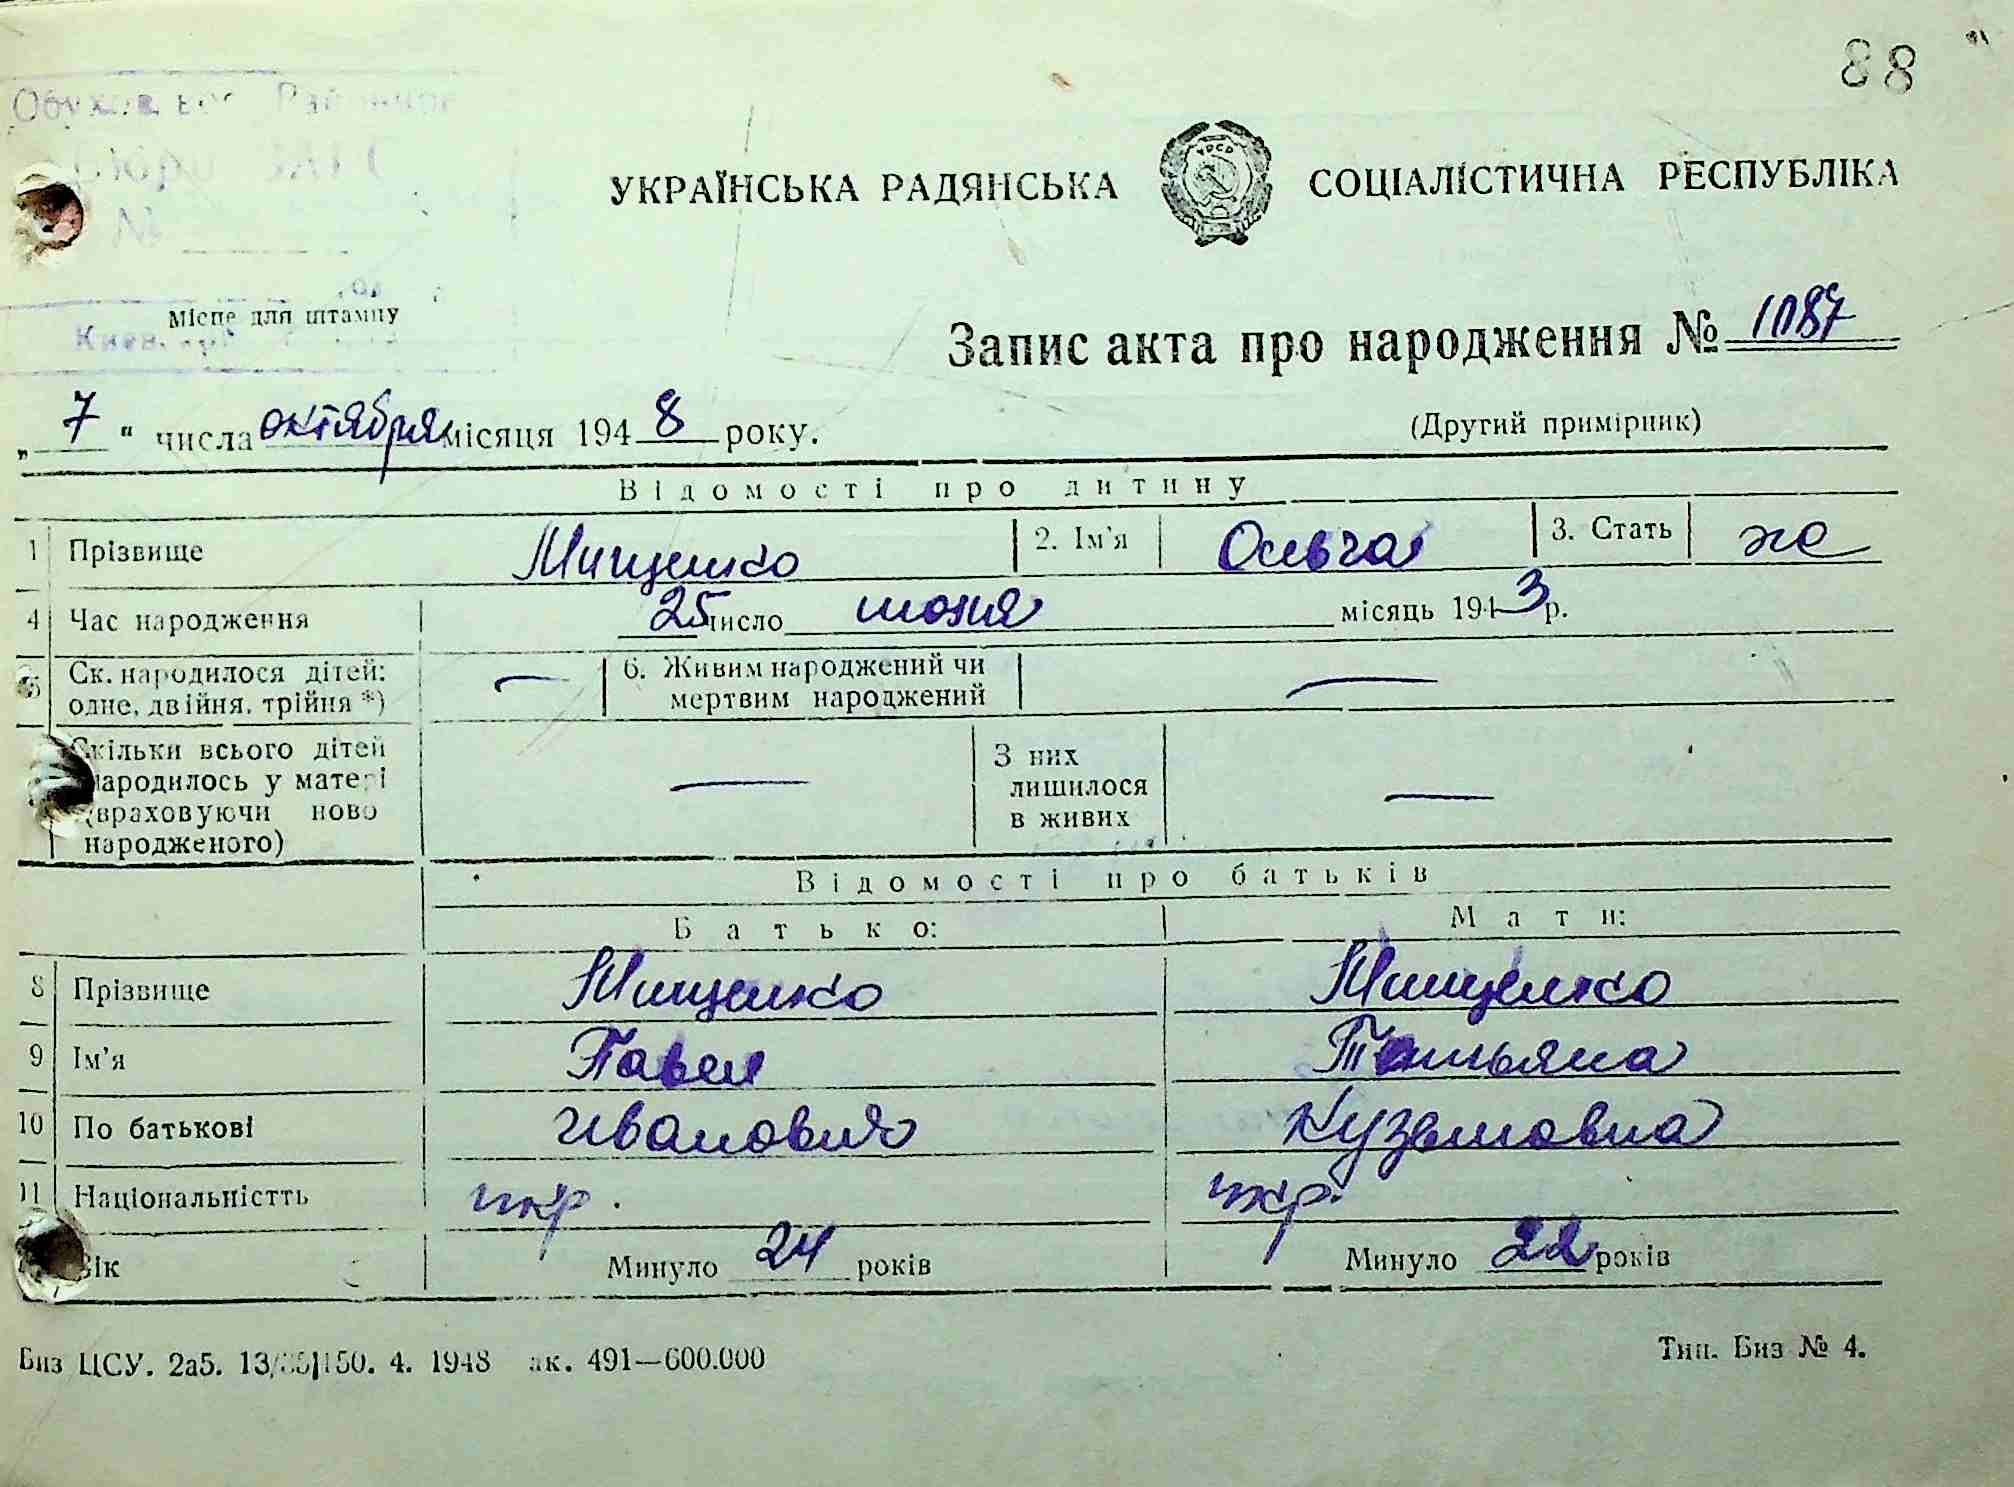 88
УКРАЇНСЬКА РАДЯНСЬКА СОЦІАЛІСТИЧНА РЕСПУБЛІКА
УРСР
№
Місце для штампу
Запис акта про народження № 1087
„ 7 “ числа октября місяця 1948 року.
(Другий примірник)
Відомості про дитину
1 Прізвище Мищенко 2. Ім'я Ольга 3. Стать ж
4 Час народження 25 число июня місяць 1943 р.
5 Ск. народилося дітей: одне, двійня, трійня *) — 6. Живим народжений чи мертвим народжений —
Скільки всього дітей народилось у матері (враховуючи ново народженого) — З них лишилося в живих —
Відомості про батьків
Батько: Мати:
8 Прізвище Мищенко Мищенко
9 Ім'я Павел Татьяна
10 По батькові Иванович Кузьмовна
11 Національністть укр. укр.
Вік Минуло 24 років Минуло 22 років
Биз ЦСУ. 2а5. 150. 4. 1948 ак. 491—600.000
Тип. Биз № 4.